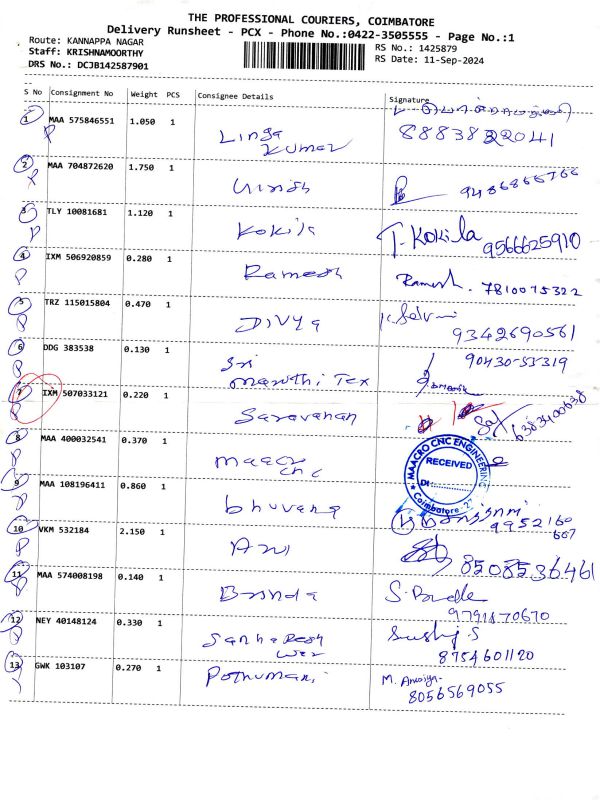 THE PROFESSIONAL COURIERS, COIMBATORE
Delivery Runsheet - PCX - Phone No.:0422-3505555 - Page No.:1
Route: KANNAPPA NAGAR
Staff: KRISHNAMOORTHY
DRS No.: DCJB142587901
RS No.: 1425879
RS Date: 11-Sep-2024
S No Consignment No Weight PCS Consignee Details Signature
1 MAA 575846551 1.050 1 Linga Kumar
8883822041
P
2 MAA 704872620 1.750 1
P
3 TLY 10081681 1.120 1 Kokila T. Kokila
9566625910
P
4 IXM 506920859 0.280 1 Ramesh Ramesh. 7810075322
P
5 TRZ 115015804 0.470 1 Divya K. Selvi
9342690561
P
6 DDG 383538 0.130 1 Sri Maruthi Tex
90430-55319
P
7 IXM 507033121 0.220 1 Saravanan
6383400638
P
8 MAA 400032541 0.370 1 maacro cnc
MAACRO CNC ENGINEERING
RECEIVED
Dt:
Coimbatore
P
9 MAA 108196411 0.860 1 bhuvana
9952160
667
P
10 VKM 532184 2.150 1
8508536461
P
11 MAA 574008198 0.140 1 Brinda
9791870670
P
12 NEY 40148124 0.330 1
8754601120
13 GWK 103107 0.270 1 Pothumani
8056569055